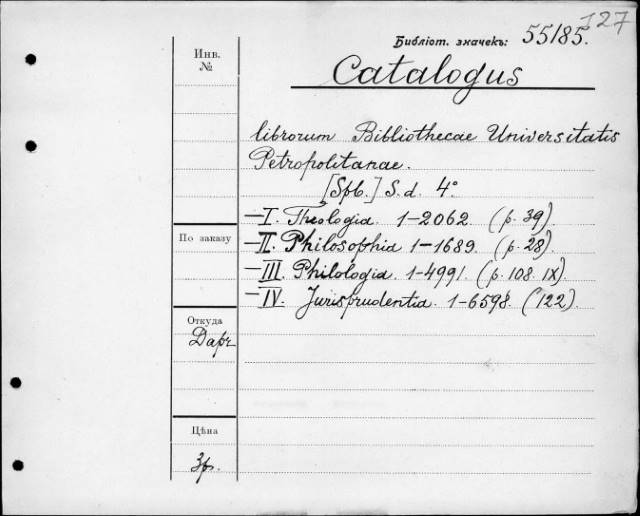 127
Библіот. значекъ: 55185.
Инв.
№
Catalogus
librorum Bibliothecae Universitatis
Petropolitanae.
[Spb.] S. d. 4°
— I. Theologia. 1–2062. (p. 39)
— II. Philosophia 1–1689. (p. 28)
По заказу
— III. Philologia. 1–4991. (p. 108. IX)
— IV. Jurisprudentia. 1–6598. (122).
Откуда
Даръ
Цѣна
3р.